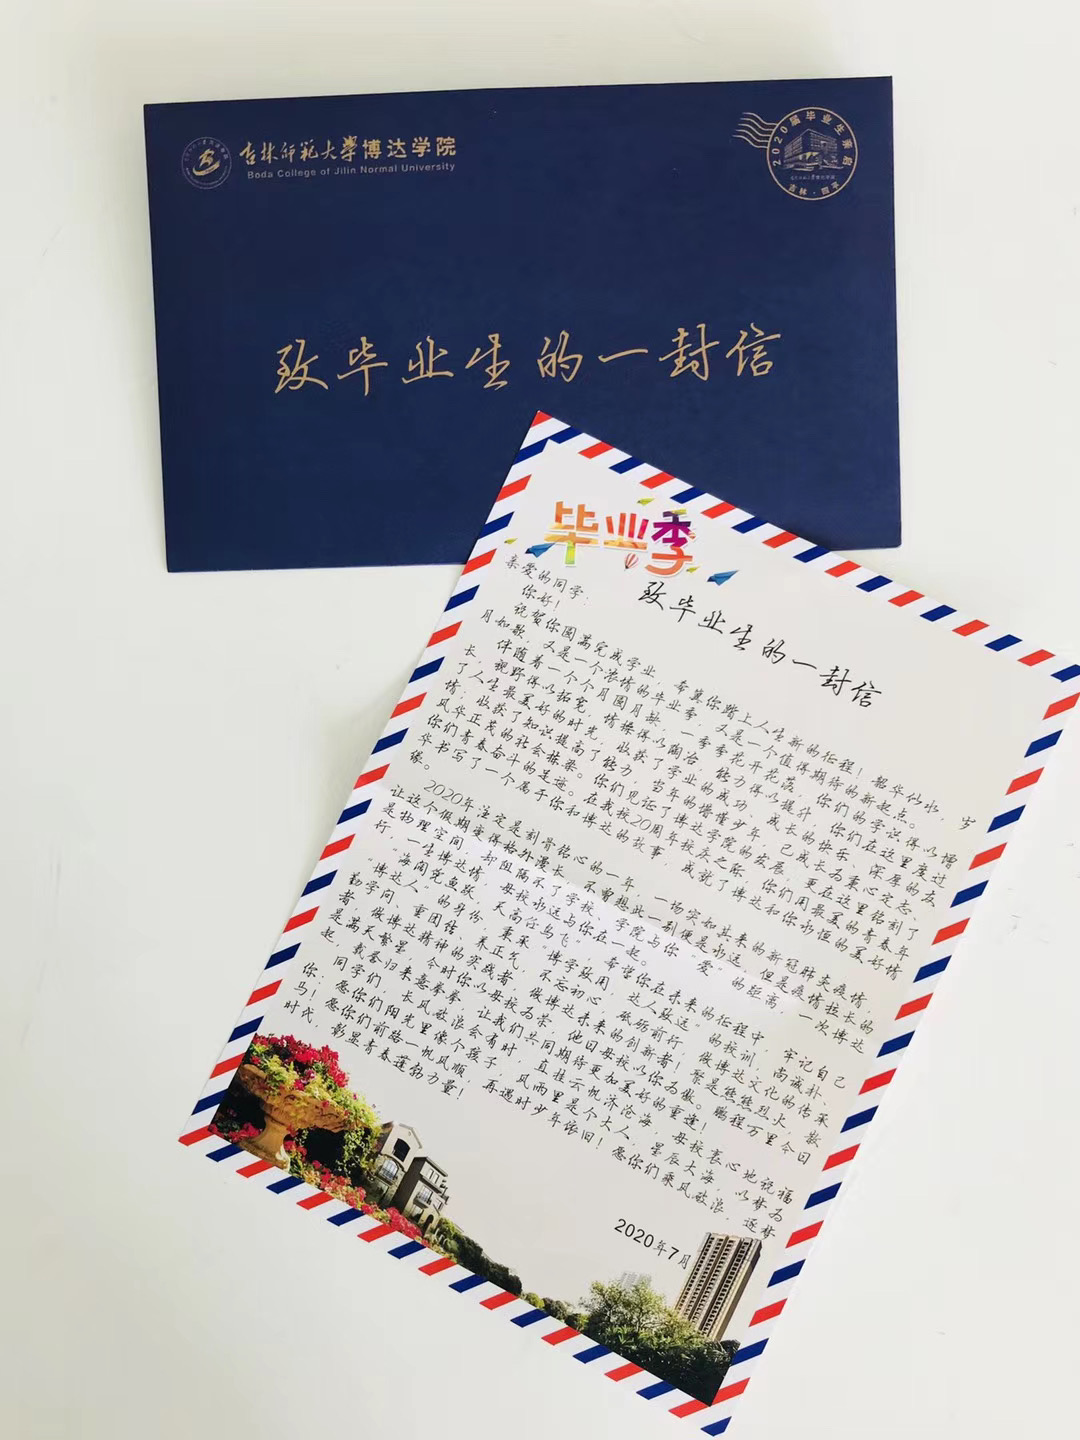 吉林师范大学博达学院
Boda College of Jilin Normal University
2020届毕业生
吉林·四平
致毕业生的一封信
毕业季
致毕业生的一封信
亲爱的同学:
你好!
祝贺你圆满完成学业，希冀你踏上人生新的征程！韶华似水，岁
月如歌，又是一个浓情的毕业季，又是一个值得期待的新起点。
伴随着一个个月圆月缺，一季季花开花落，你们的学识得以增
长，视野得以拓宽，情操得以陶冶，能力得以提升，你们在这里度过
了人生最美好的时光，收获了学业的成功、成长的快乐、深厚的友
情；收获了知识提高了能力，当年的懵懂少年，已成长为秉心定志、
风华正茂的社会栋梁。你们见证了博达学院的发展，更在这里铭刻了
你们青春奋斗的足迹。在我校20周年校庆之际，你们用最美的青春年
华书写了一个属于你和博达的故事，成就了博达和你永恒的美好情
缘。
2020年注定是刻骨铭心的一年，一场突如其来的新冠肺炎疫情，
让这个假期变得格外漫长，不曾想此一别便是永远，但是疫情拉长的
是物理空间，却阻隔不了学校、学院与你“爱”的距离，一次博达
行，一生博达情，母校永远与你在一起。
“海阔凭鱼跃，天高任鸟飞”，希望你在未来的征程中，牢记自己
“博达人”的身份，秉承“博学致用，达人致远”的校训，尚诚朴、
勤学问、重团结、养正气，不忘初心，砥砺前行！做博达文化的传承
者，做博达精神的实践者，做博达未来的创新者！聚是熊熊烈火，散
是满天繁星，今时你以母校为荣，他日母校以你为傲。鹏程万里今日
起，载誉归来意拳拳，让我们共同期待更加美好的重逢！
同学们，长风破浪会有时，直挂云帆济沧海，母校衷心地祝福
你：愿你们阳光里像个孩子，风雨里是个大人，星辰大海，以梦为
马！愿你们前路一帆风顺，再遇时少年依旧！愿你们乘风破浪、逐梦
时代，彰显青春蓬勃力量！
2020年7月